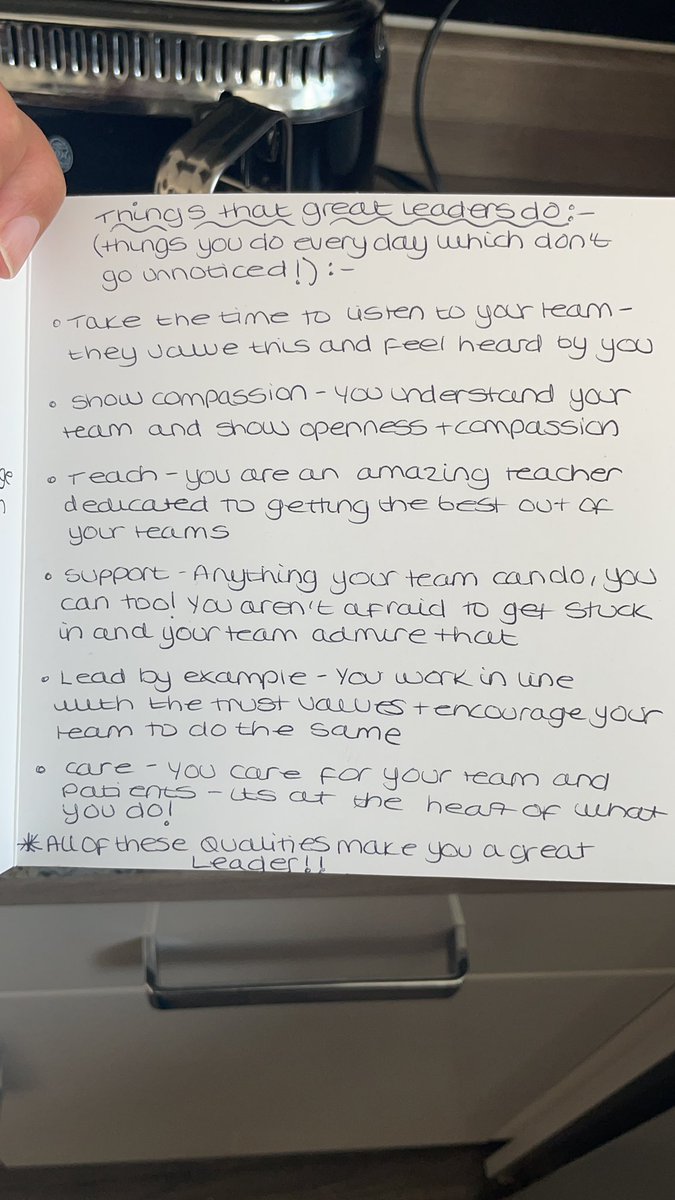 Things that great leaders do:-
(things you do every day which don't
go unnoticed!) :-
• Take the time to listen to your team -
they value this and feel heard by you
• Show compassion - you understand your
team and show openness + compassion
• Teach - you are an amazing teacher
dedicated to getting the best out of
your teams
• Support - Anything your team can do, you
can too! You aren't afraid to get stuck
in and your team admire that
• Lead by example - You work in line
with the trust values + encourage your
team to do the same
• Care - you care for your team and
patients - its at the heart of what
you do!
*All of these qualities make you a great
Leader!!